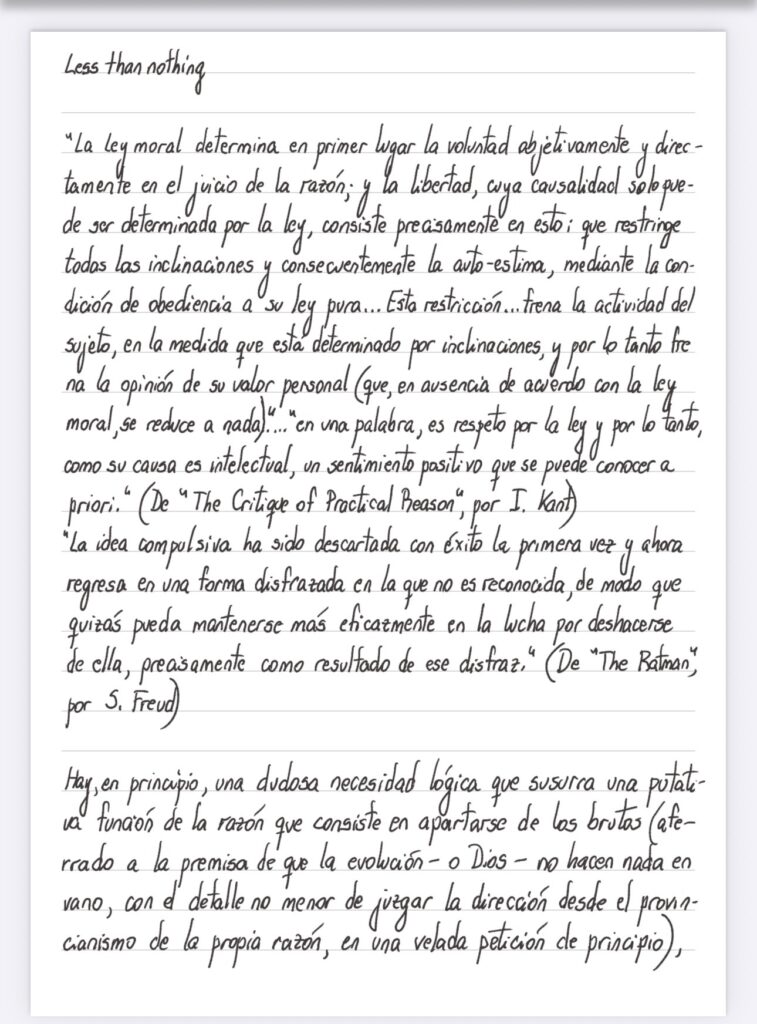 Less than nothing
"La ley moral determina en primer lugar la voluntad objetivamente y direc-
tamente en el juicio de la razón; y la libertad, cuya causalidad solo pue-
de ser determinada por la ley, consiste precisamente en esto: que restringe
todas las inclinaciones y consecuentemente la auto-estima, mediante la con-
dición de obediencia a su ley pura... Esta restricción... frena la actividad del
sujeto, en la medida que está determinado por inclinaciones, y por lo tanto fre
na la opinión de su valor personal (que, en ausencia de acuerdo con la ley
moral, se reduce a nada)."..."en una palabra, es respeto por la ley y por lo tanto,
como su causa es intelectual, un sentimiento positivo que se puede conocer a
priori." (De "The Critique of Practical Reason", por I. Kant)
"La idea compulsiva ha sido descartada con éxito la primera vez y ahora
regresa en una forma disfrazada en la que no es reconocida, de modo que
quizás pueda mantenerse más eficazmente en la lucha por deshacerse
de ella, precisamente como resultado de ese disfraz." (De "The Ratman",
por S. Freud)
Hay, en principio, una dudosa necesidad lógica que susurra una putati-
va función de la razón que consiste en apartarse de los brutos (afe-
rrado a la premisa de que la evolución - o Dios - no hacen nada en
vano, con el detalle no menor de juzgar la dirección desde el provin-
cianismo de la propia razón, en una velada petición de principio),